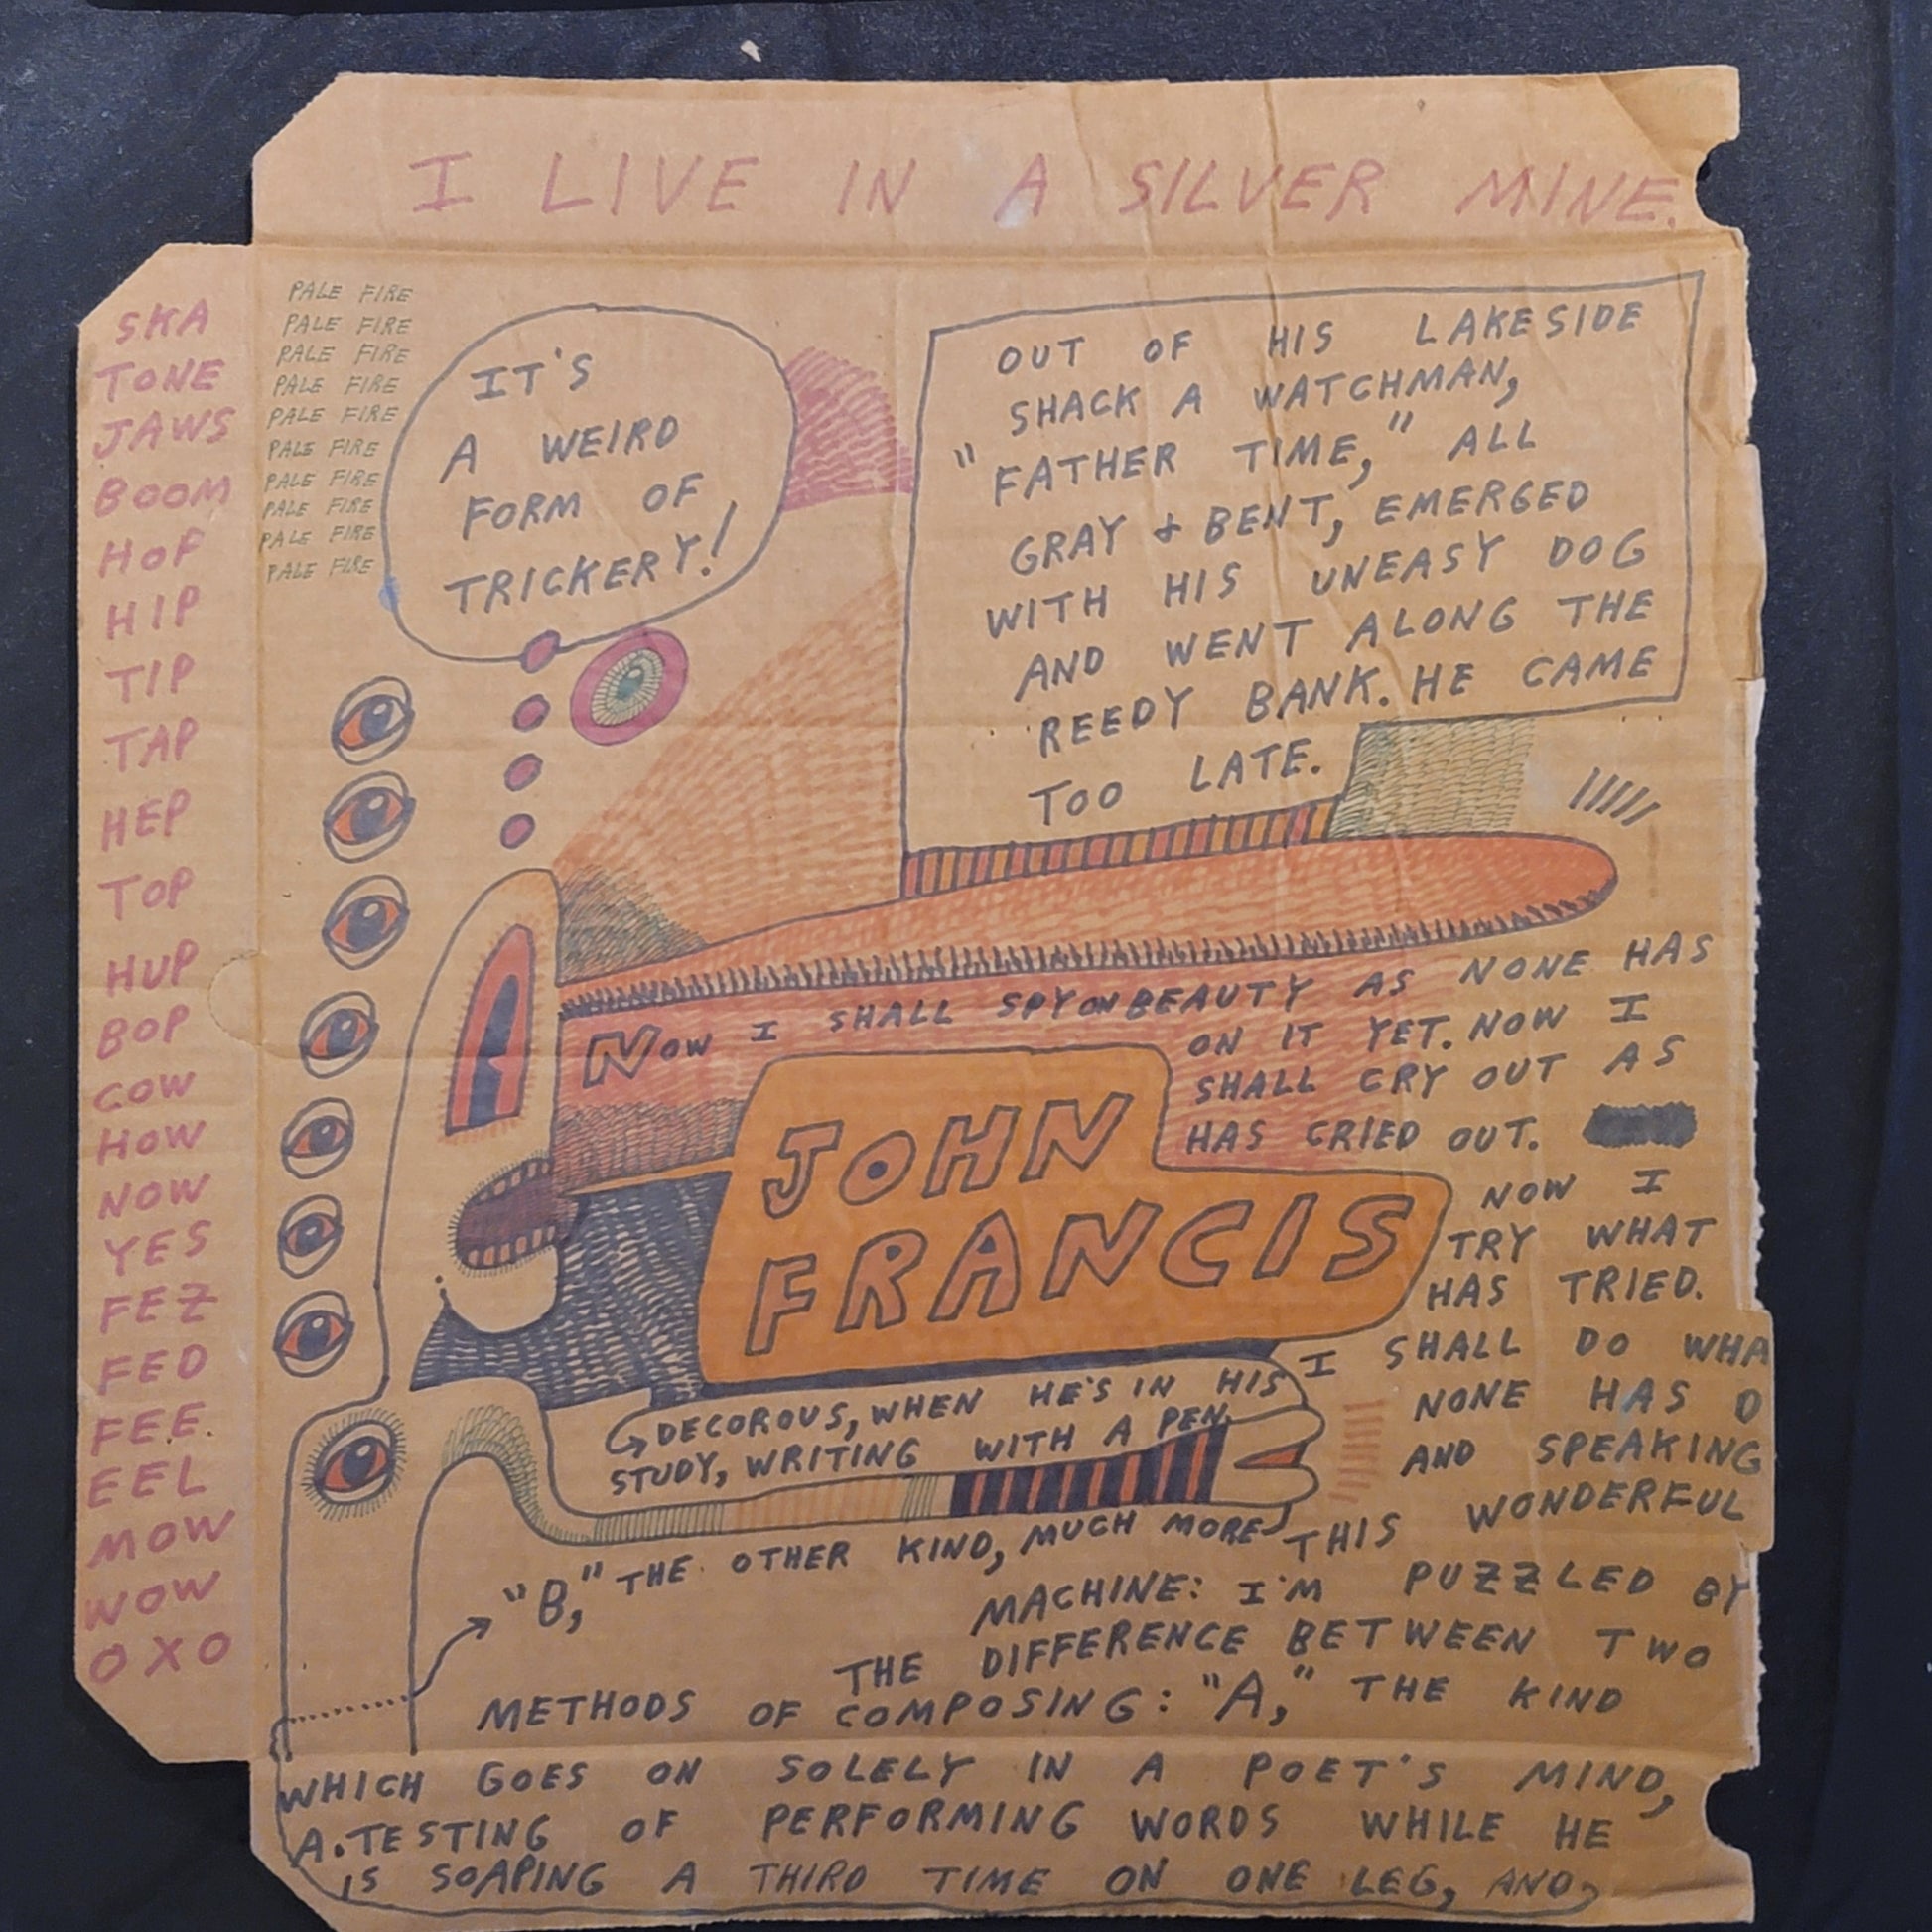 I LIVE IN A SILVER MINE.
SKA
TONE
JAWS
BOOM
HOP
HIP
TIP
TAP
HEP
TOP
HUP
BOP
COW
HOW
NOW
YES
FEZ
FED
FEE.
EEL
MOW
WOW
OXO
PALE FIRE
PALE FIRE
PALE FIRE
PALE FIRE
PALE FIRE
PALE FIRE
PALE FIRE
PALE FIRE
PALE FIRE
PALE FIRE
IT'S
A WEIRD
FORM OF
TRICKERY!
OUT OF HIS LAKESIDE
SHACK A WATCHMAN,
"FATHER TIME," ALL
GRAY & BENT, EMERGED
WITH HIS UNEASY DOG
AND WENT ALONG THE
REEDY BANK. HE CAME
TOO LATE.
NOW I SHALL SPY ON BEAUTY AS NONE HAS
ON IT YET. NOW I
SHALL CRY OUT AS
HAS CRIED OUT.
NOW I
TRY WHAT
HAS TRIED.
I SHALL DO WHA
NONE HAS D
AND SPEAKING
THIS WONDERFUL
MACHINE: I'M PUZZLED BY
THE DIFFERENCE BETWEEN TWO
METHODS OF COMPOSING: "A," THE KIND
WHICH GOES ON SOLELY IN A POET'S MIND,
A. TESTING OF PERFORMING WORDS WHILE HE
IS SOAPING A THIRD TIME ON ONE LEG, AND,
"B," THE OTHER KIND, MUCH MORE
DECOROUS, WHEN HE'S IN HIS
STUDY, WRITING WITH A PEN.
JOHN
FRANCIS